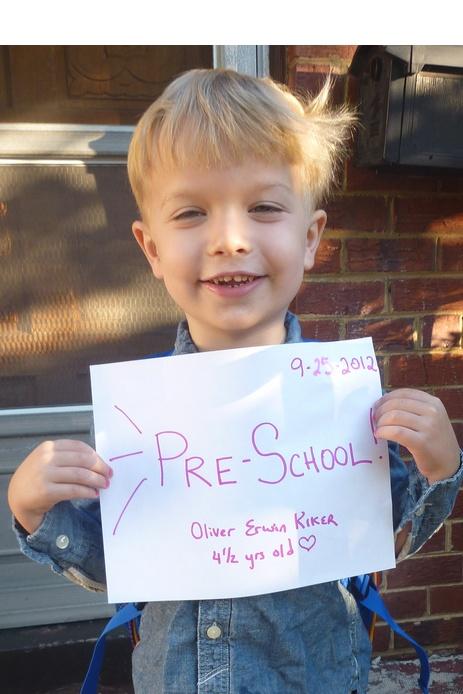 9-25-2012
PRE-SCHOOL!
Oliver Erwin KIKER
4½ yrs old ♡